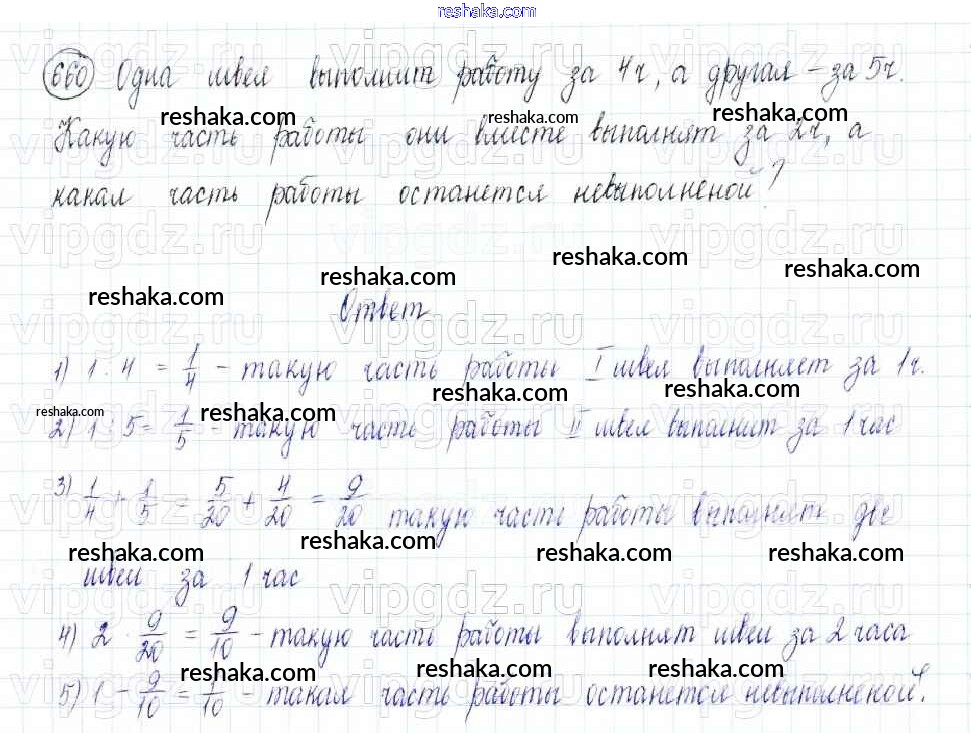 reshaka.com
660 Одна швея выполнит работу за 4ч, а другая – за 5ч.
reshaka.com reshaka.com reshaka.com
Какую часть работы они вместе выполнят за 2ч, а
какая часть работы останется невыполненой?
vipgdz.ru vipgdz.ru vipgdz.ru
reshaka.com reshaka.com reshaka.com reshaka.com
Ответ
1) 1 : 4 = 1/4 – такую часть работы I швея выполняет за 1ч.
reshaka.com reshaka.com reshaka.com
2) 1 : 5 = 1/5 – такую часть работы II швея выполнит за 1 час
3) 1/4 + 1/5 = 5/20 + 4/20 = 9/20 такую часть работы выполнят две
reshaka.com reshaka.com reshaka.com reshaka.com
швеи за 1 час
4) 2 · 9/20 = 9/10 – такую часть работы выполнят швеи за 2 часа
reshaka.com reshaka.com reshaka.com
5) 1 – 9/10 = 1/10 – такая часть работы останется невыполненой.